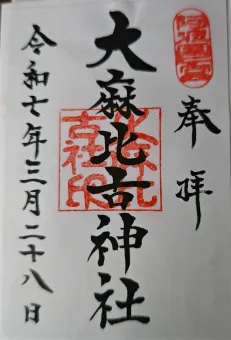 奉拝
大麻比古神社
令和七年三月二十八日